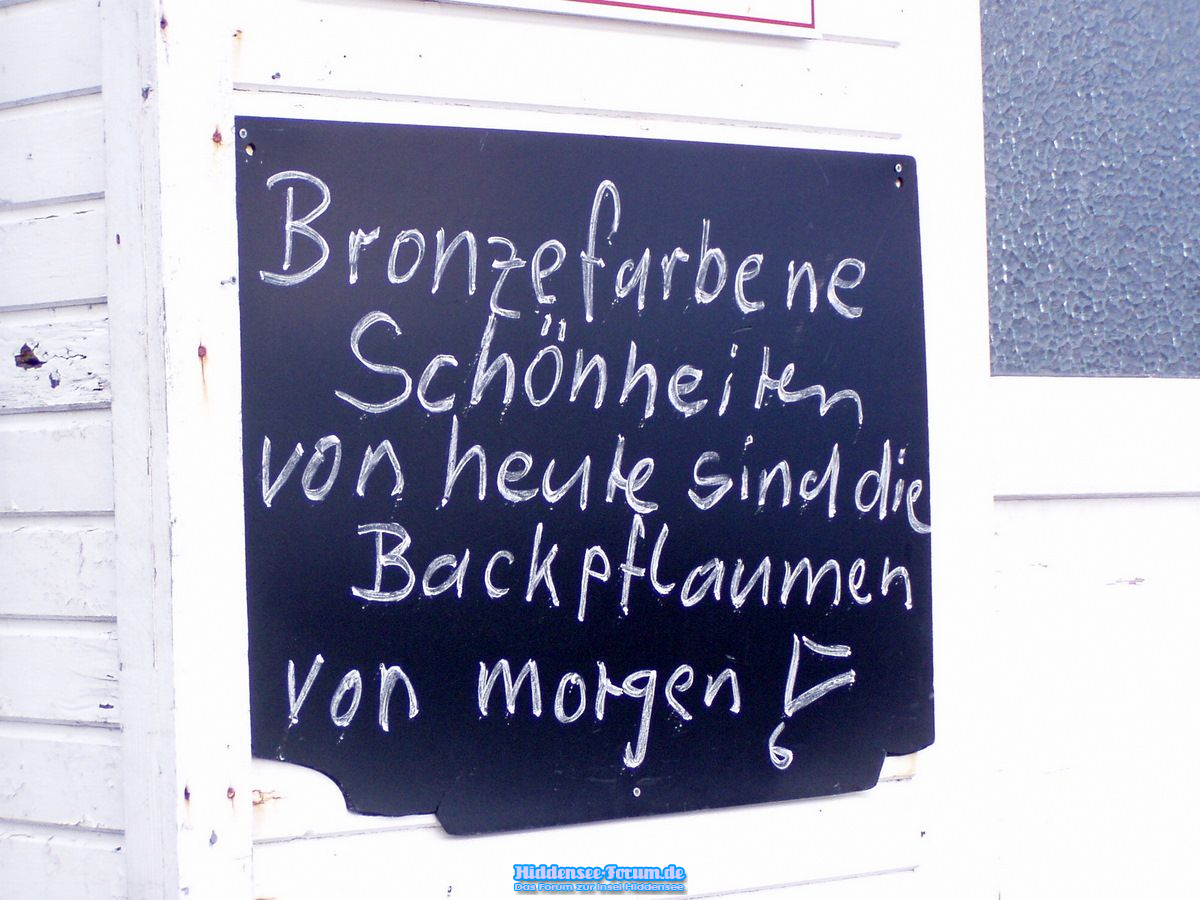 Bronzefarbene
Schönheiten
von heute sind die
Backpflaumen
von morgen!
Hiddensee-Forum.de
Das Forum zur Insel Hiddensee